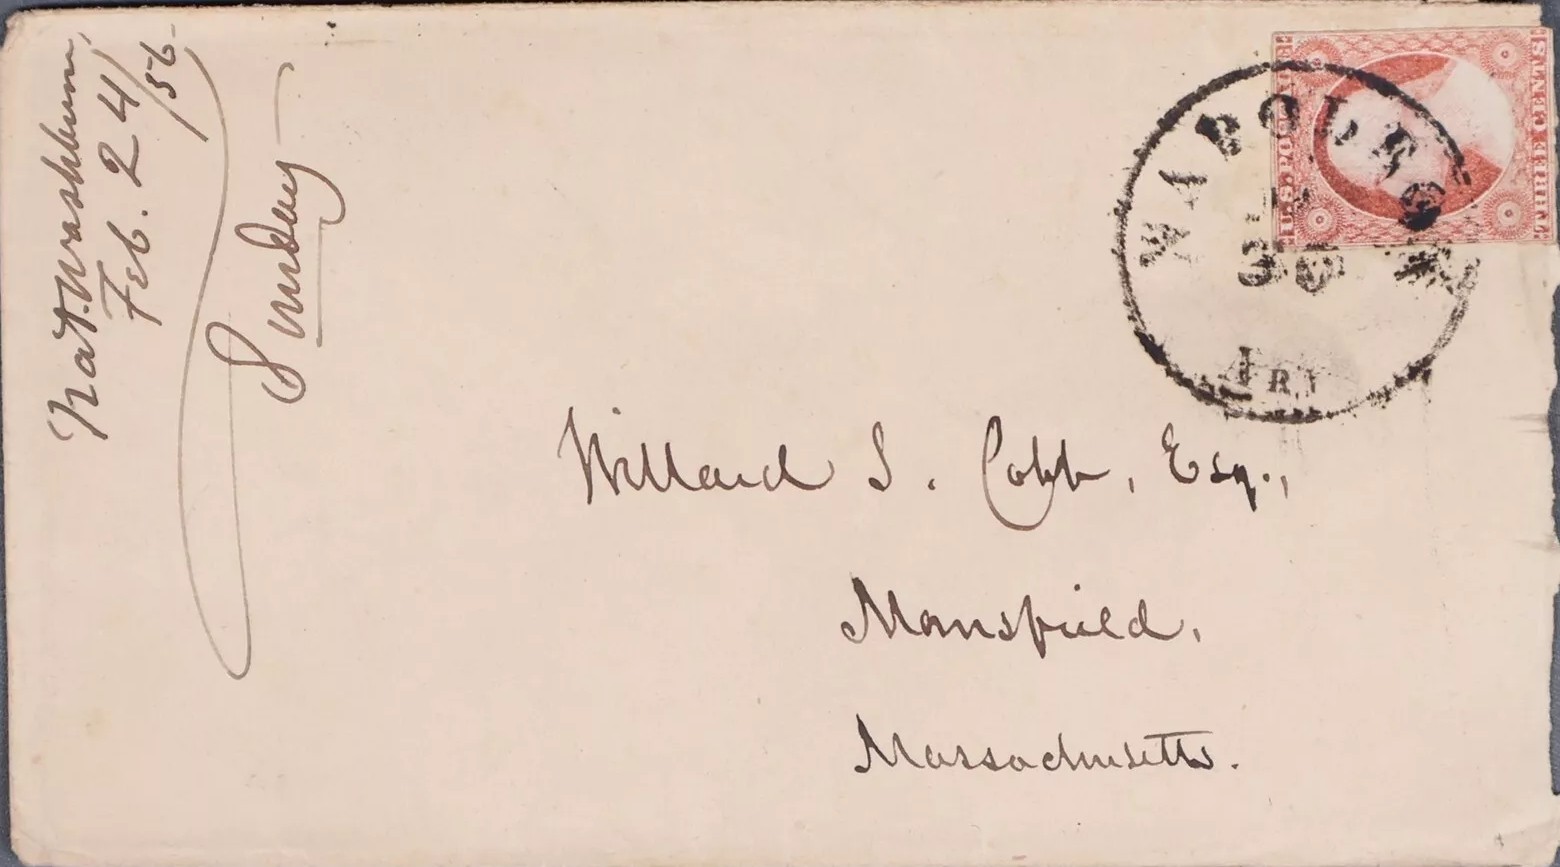 Nat. Washburn,
Feb. 24/56-
Sunday
U.S. POSTAGE
THREE CENTS
Willard S. Cobb, Esq.,
Mansfield.
Massachusetts.